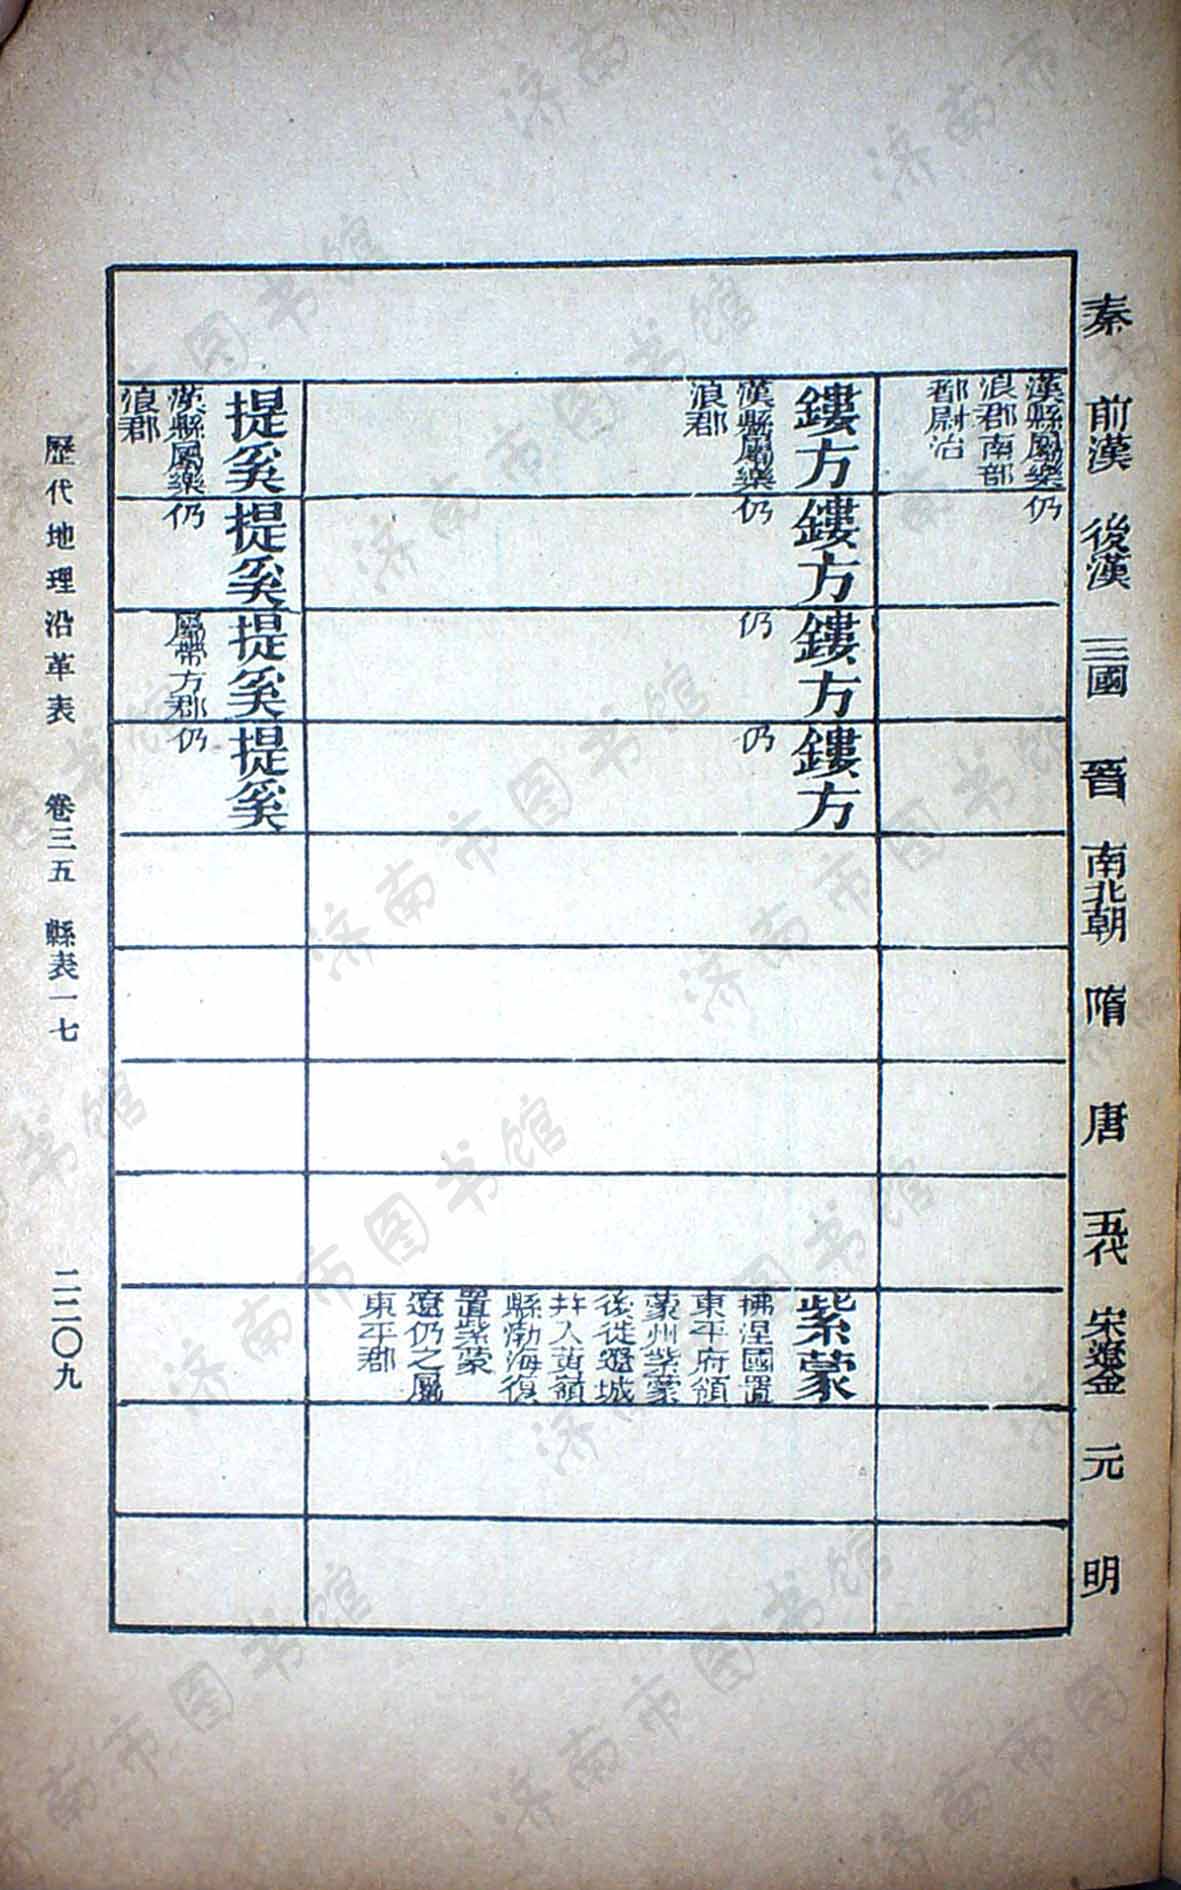 秦
前漢
後漢
三國
晉
南北朝
隋
唐
五代
宋遼金
元
明
漢縣屬樂
浪郡南部
都尉治
仍
鏤方
漢縣屬樂
浪郡
鏤方
仍
鏤方
仍
鏤方
仍
紫蒙
拂涅國置
東平府領
蒙州紫蒙
後徙遼城
幷入黃嶺
縣渤海復
置紫蒙
遼仍之屬
東平郡
提奚
漢縣屬樂
浪郡
提奚
仍
提奚
屬帶方郡
提奚
仍
歷代地理沿革表 卷三五 縣表一七 二二〇九
济南市图书馆